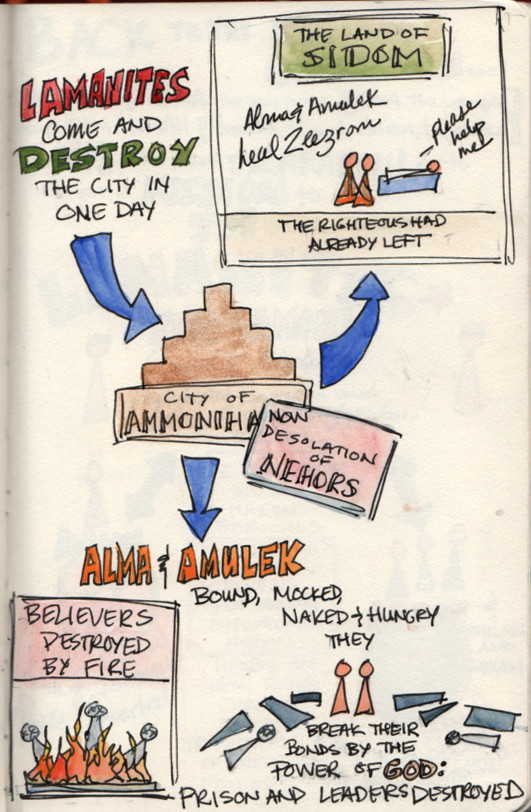 LAMANITES
COME AND
DESTROY
THE CITY IN
ONE DAY
THE LAND OF
SIDOM
Alma & Amulek
heal Zeezrom
please
help
me!
THE RIGHTEOUS HAD
ALREADY LEFT
CITY OF
AMMONIHA
NOW
DESOLATION
OF
NEHORS
ALMA & AMULEK
BOUND, MOCKED,
NAKED & HUNGRY
THEY
BREAK THEIR
BONDS BY THE
POWER OF GOD:
PRISON AND LEADERS DESTROYED
BELIEVERS
DESTROYED
BY FIRE